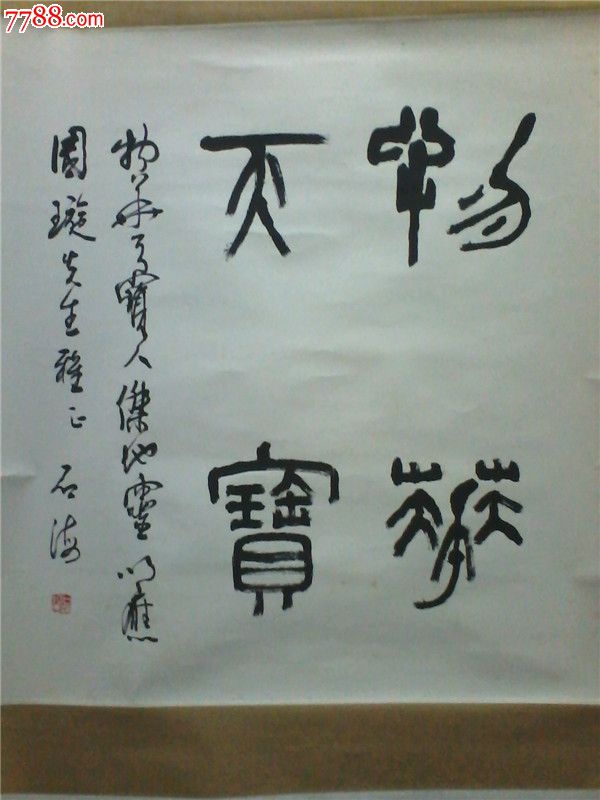 7788.com
物華
天寶
物華天寶人傑地靈以應
國璇先生雅正 石海